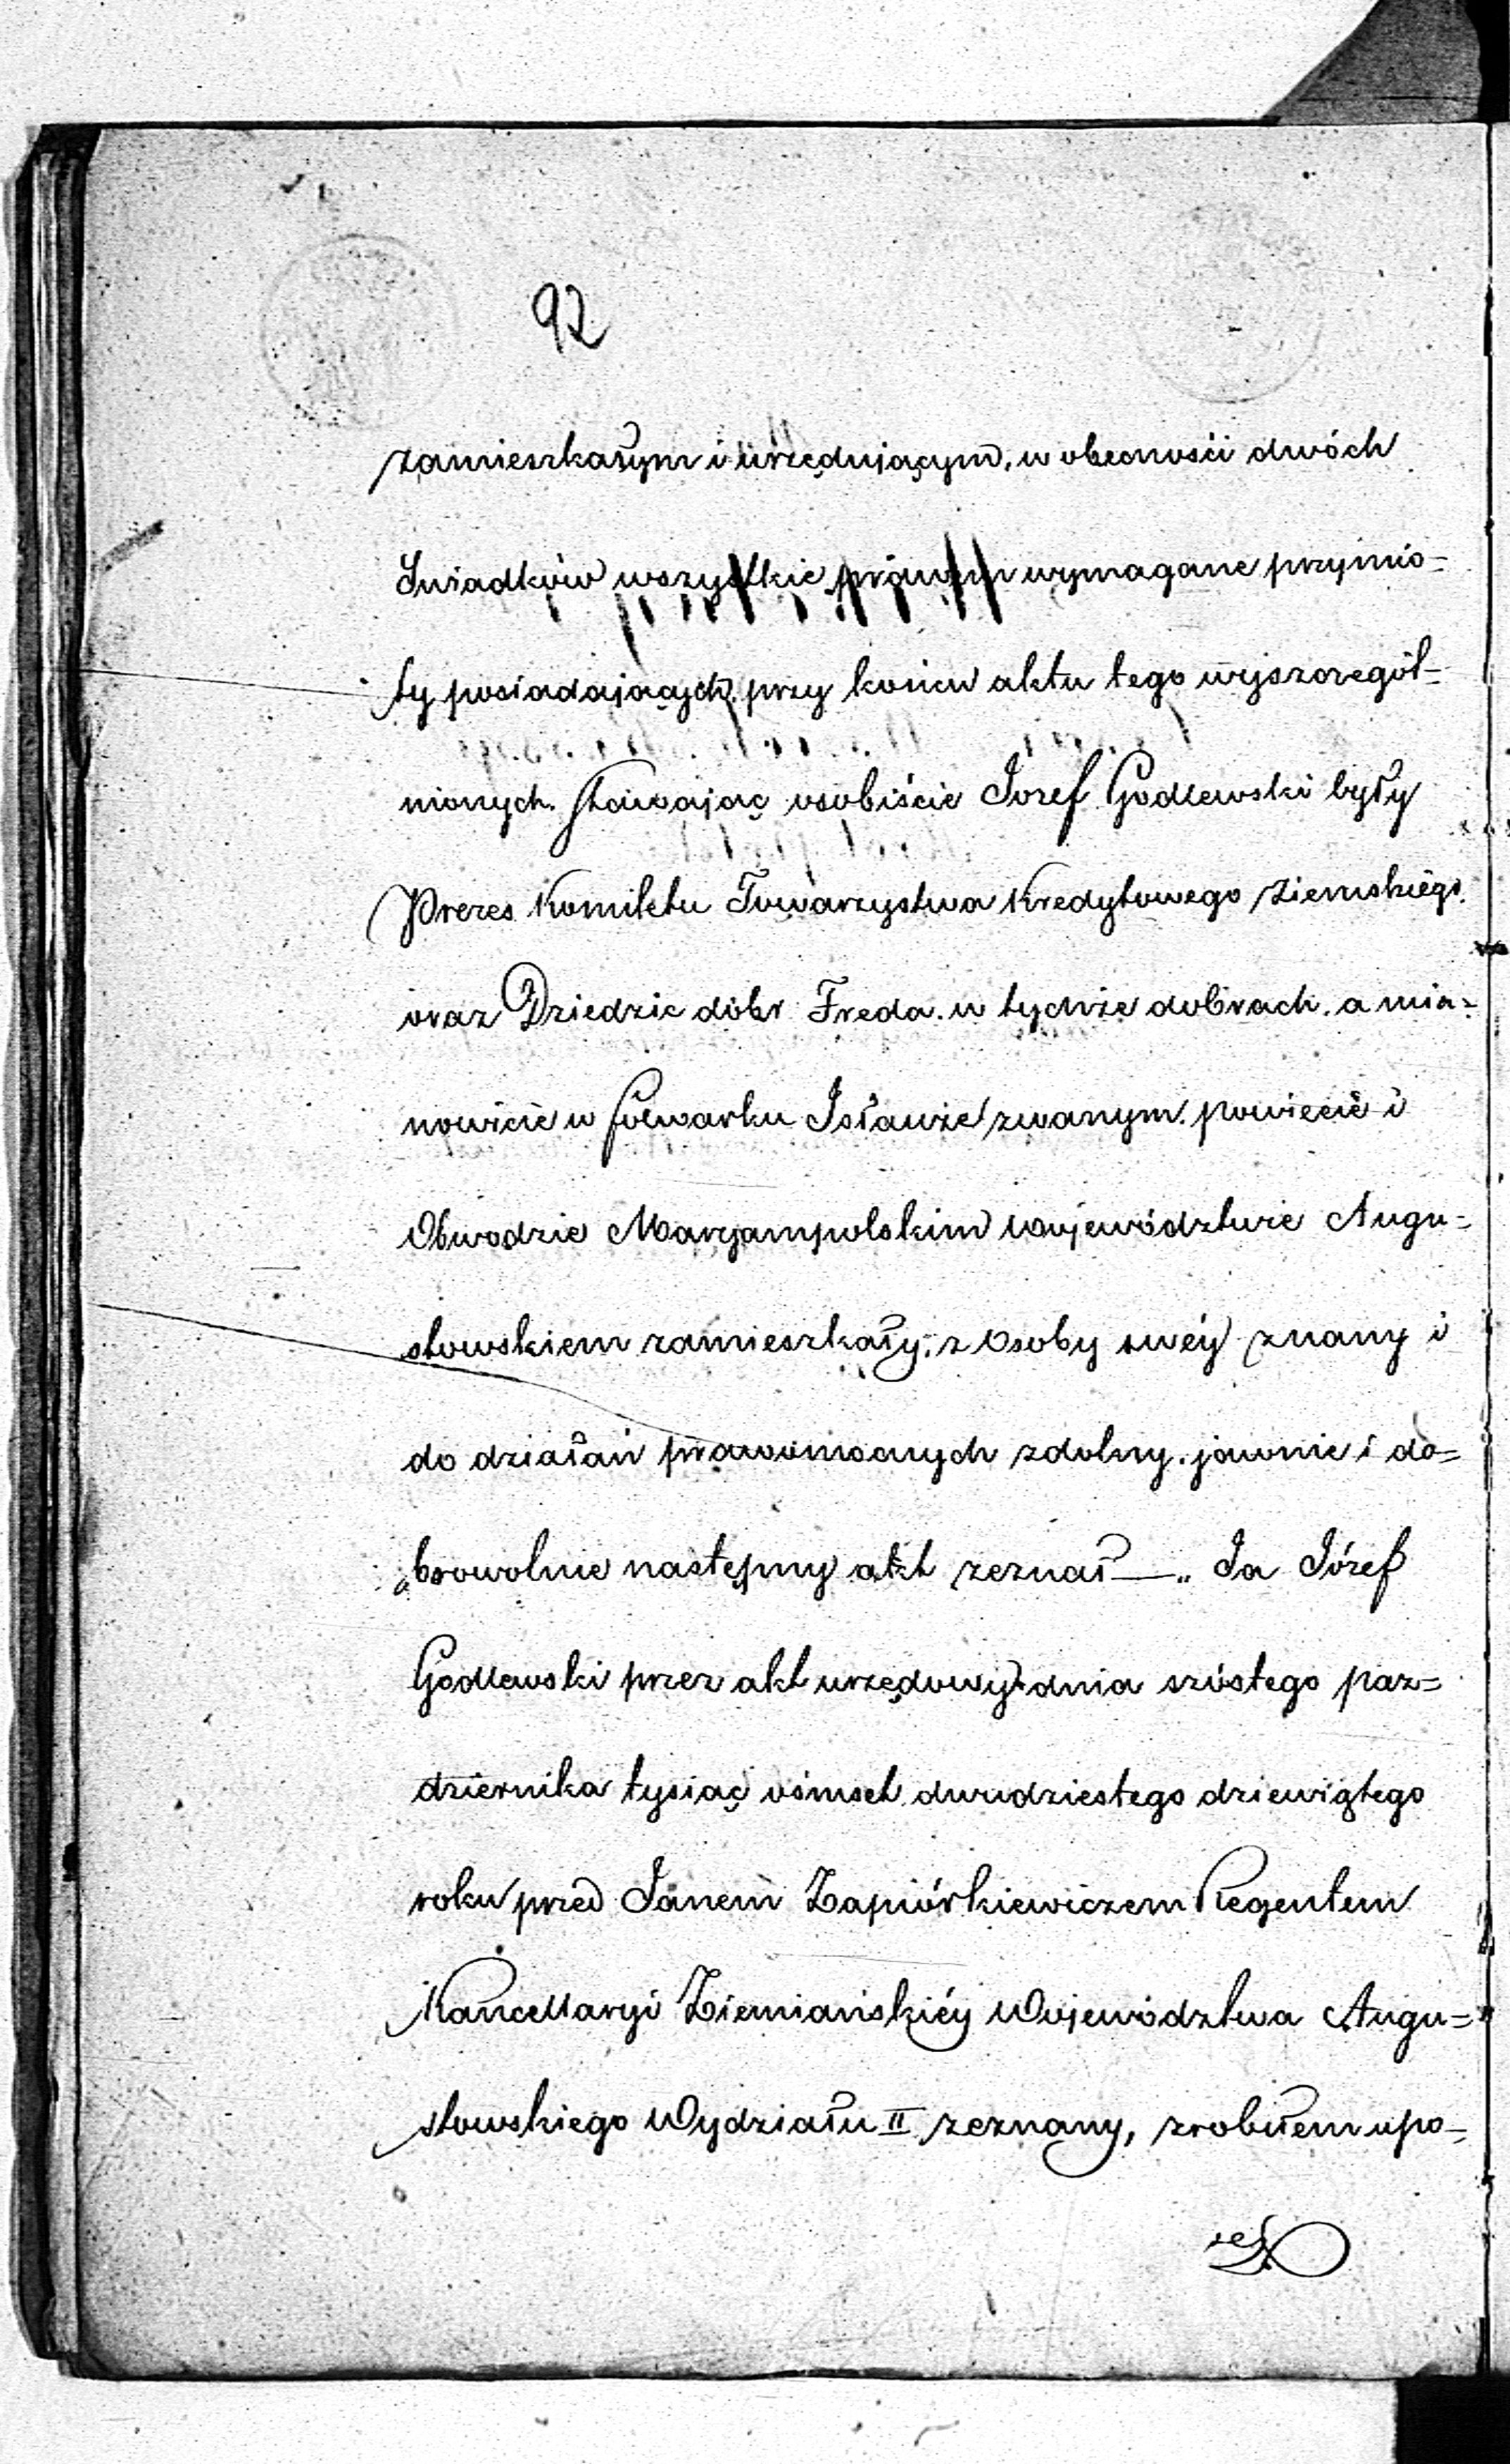 92
zamieszkałym i urzędującym, w obecności dwóch
Swiadków wszystkie prawem wymagane przymio=
ty posiadających, przy końcu aktu tego wyszczegól=
nionych. stawając osobiście Józef Godlewski były
Prezes Komitetu Towarzystwa Kredytowego Ziemskiego.
oraz Dziedzic dóbr Freda. w tychże dobrach. a mia=
nowicie w folwarku Isłauże zwanym. powiecie i
Obwodzie Maryampolskim Województwie Augu=
stowskiem zamieszkały, z Osoby swéy znany i
do działań prawomocnych zdolny. jawnie i do=
browolnie następny akt zeznał —„ Ja Józef
Godlewski przez akt urzędowy dnia szóstego paz=
dziernika tysiąc ośmset dwudziestego dziewiątego
roku przed Janem Zapiórkiewiczem Regentem
Kancellaryi Ziemiańskiéy Województwa Augu=
stowskiego Wydziału II zeznany, zrobiłem upo=